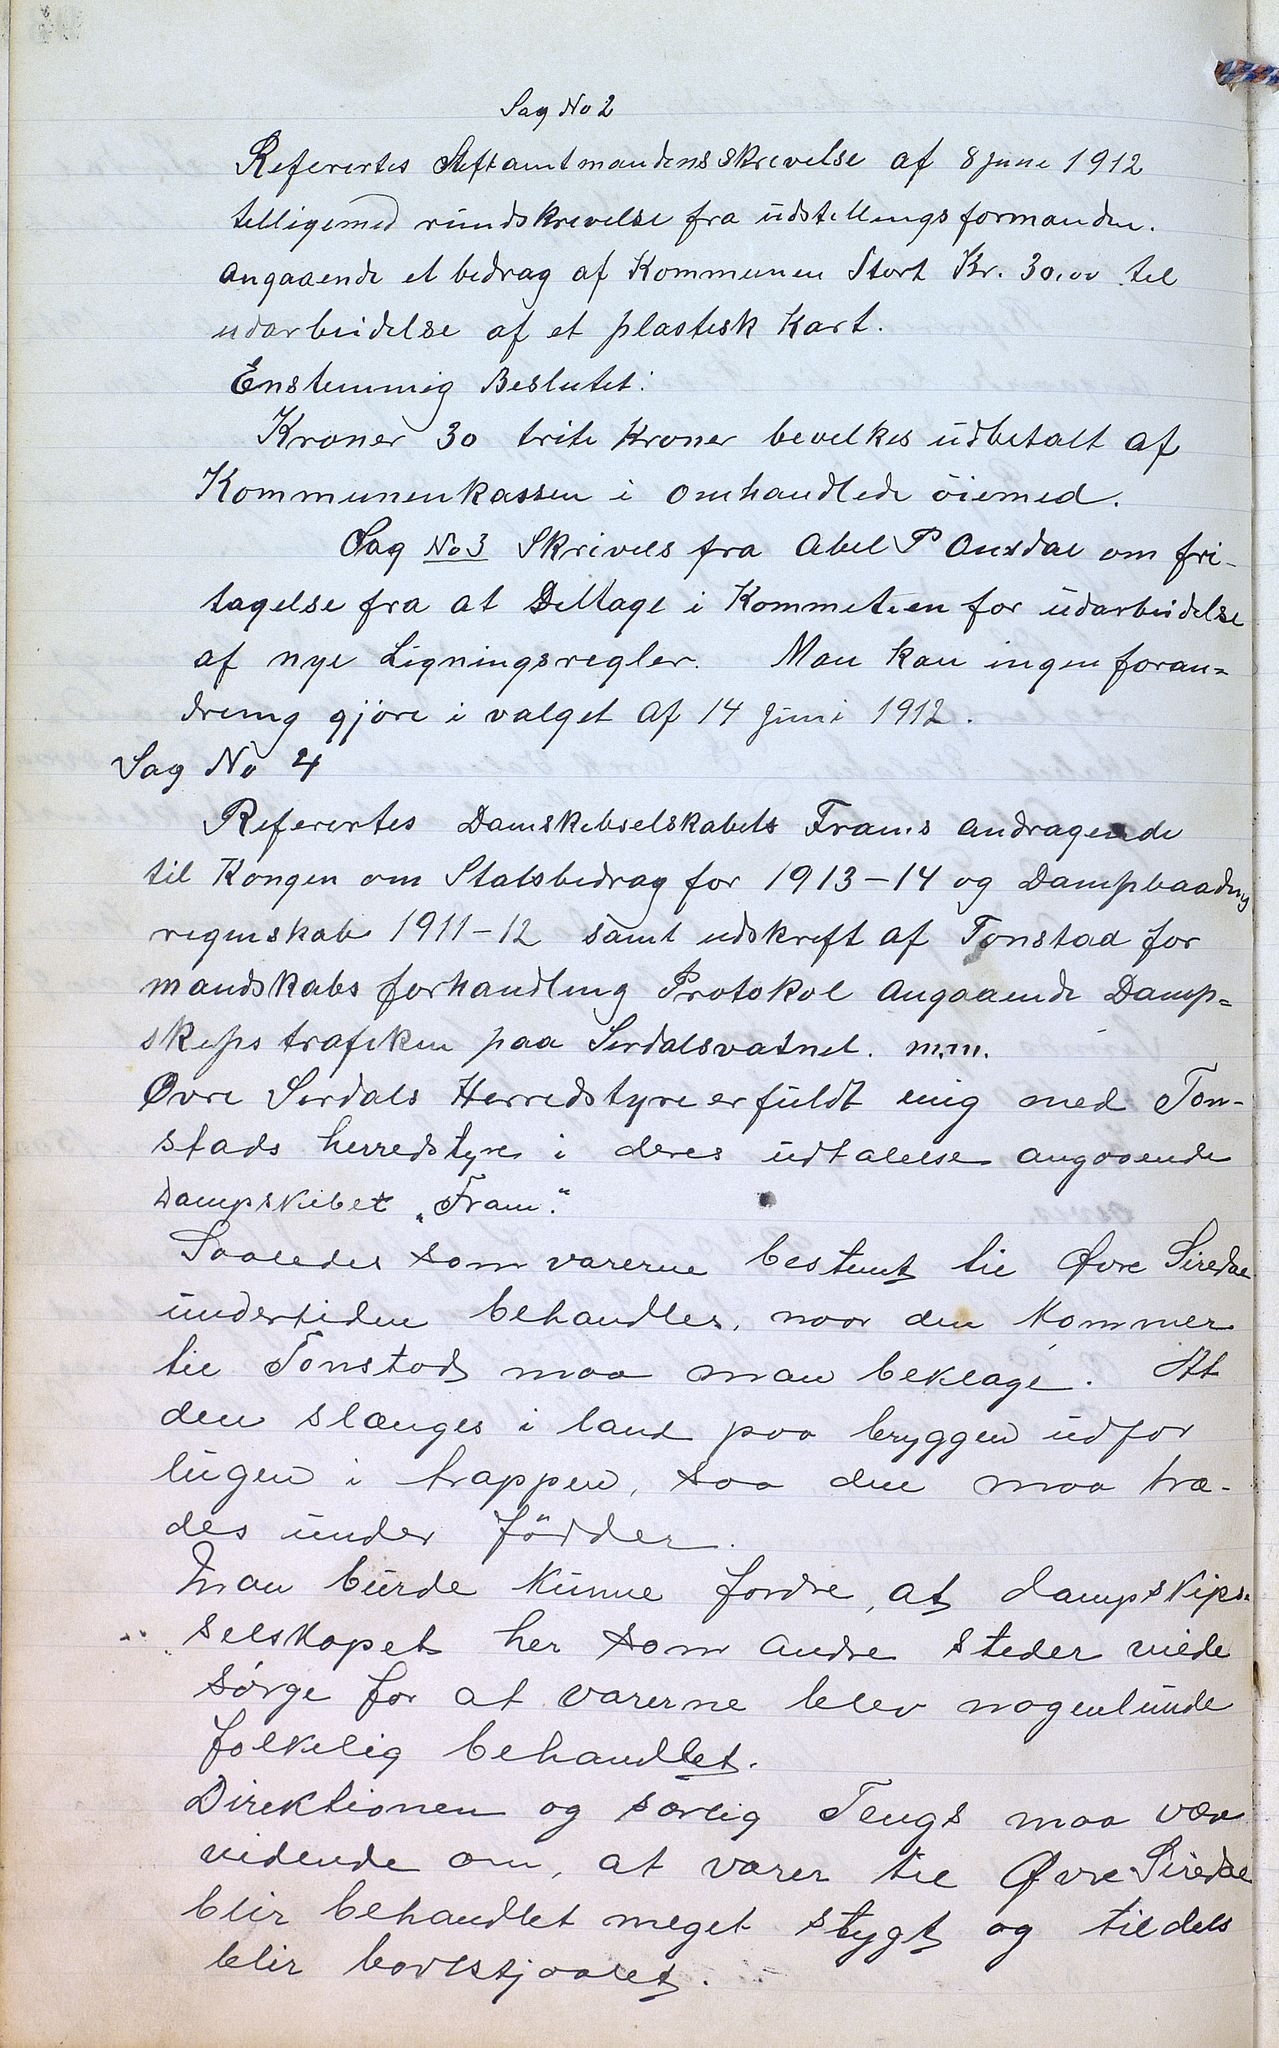 Sag No 2
Referertes Stiftamtmandens skrivelse af 8 juni 1912
tilligemed rundskrivelse fra udstillingsformanden.
angaaende et bedrag af Kommunen Stort Kr. 30,00 til
udarbeidelse af et plastisk Kart.
Enstemmig Beslutet:
Kroner 30 triti Kroner bevelkes udbetalt af
Kommunenkassen i omhandlede øiemed.
Sag No 3 Skrivels fra Abel P Ousdal om fri-
tagelse fra at Deltage i Kommeteen for udarbeidelse
af nye Ligningsregler. Man kan ingen foran=
dring gjøre i valget af 14 juni 1912.
Sag No 4
Referertes Damskibselskabets Frams andragende
til Kongen om Statsbedrag for 1913-14 og Dampbaadens
regnskab 1911-12 samt udskreft af Tonstad for
mandskabs forhandling Protokol angaaende Damp=
skips trafiken paa Sirdalsvatnet. m.m.
Øvre Sirdals Herredstyre er fuldt enig med Ton-
stads herredstyre i deres udtalelse angaaende
Dampskibet „Fram“.
Saaledes som varerne bestemt til Øvre Siredal
undertiden behandles, naar den kommer
til Tonstad maa man beklage. At
den slænges i land paa bryggen udfor
lugen i trappen, saa den maa træ-
des under fødder.
Man burde kunne fordre, at dampskips-
selskapet her som andre steder vilde
sørge for at varerne blev nogenlunde
folkelig behandlet.
Direktionen og særlig Tengs maa være
vidende om, at varer til Øvre Siredal
blir behandlet meget stygt og tildels
blir bortstjaalet.